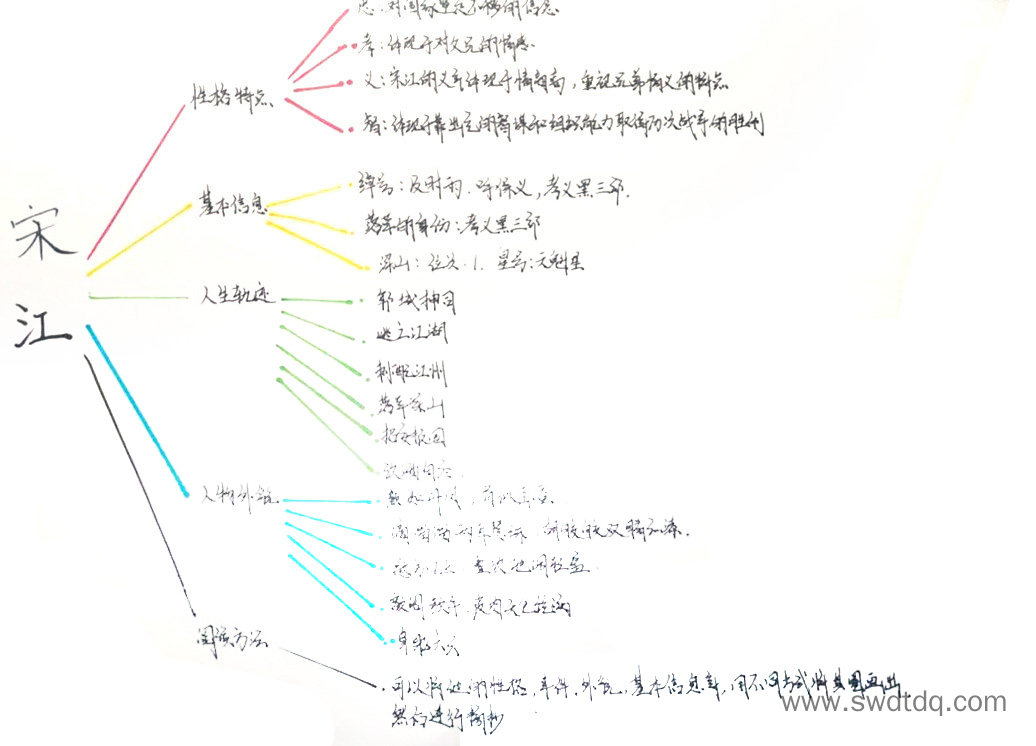 宋江
性格特点
忠：对国家坚定不移的信念
孝：体现于对父兄的情感
义：宋江的义气体现于情趣高，重视兄弟情义的特点
智：体现于靠出色的智谋和组织能力取得历次战争的胜利
基本信息
绰号：及时雨、呼保义，孝义黑三郎.
落草的身份：孝义黑三郎
梁山：位次：1. 星号：天魁星
人生轨迹
郓城押司
逃亡江湖
刺配江州
落草梁山
招安报国
饮鸩
人物外貌
眼如丹凤，
唇方口正
身躯六尺
阅读方法
可以将他的性格，事件，外貌，基本信息等，用不同方式将其圈画出
然后进行摘抄
www.swdtdq.com